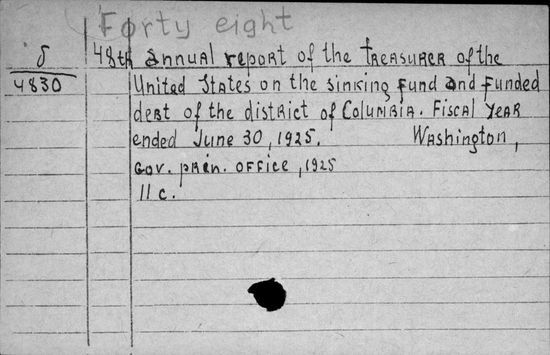 Forty eight
δ 48th annual report of the treasurer of the
4830 United States on the sinking fund and funded
debt of the district of Columbia. Fiscal year
ended June 30, 1925. Washington,
Gov. prin. office, 1925
11 c.